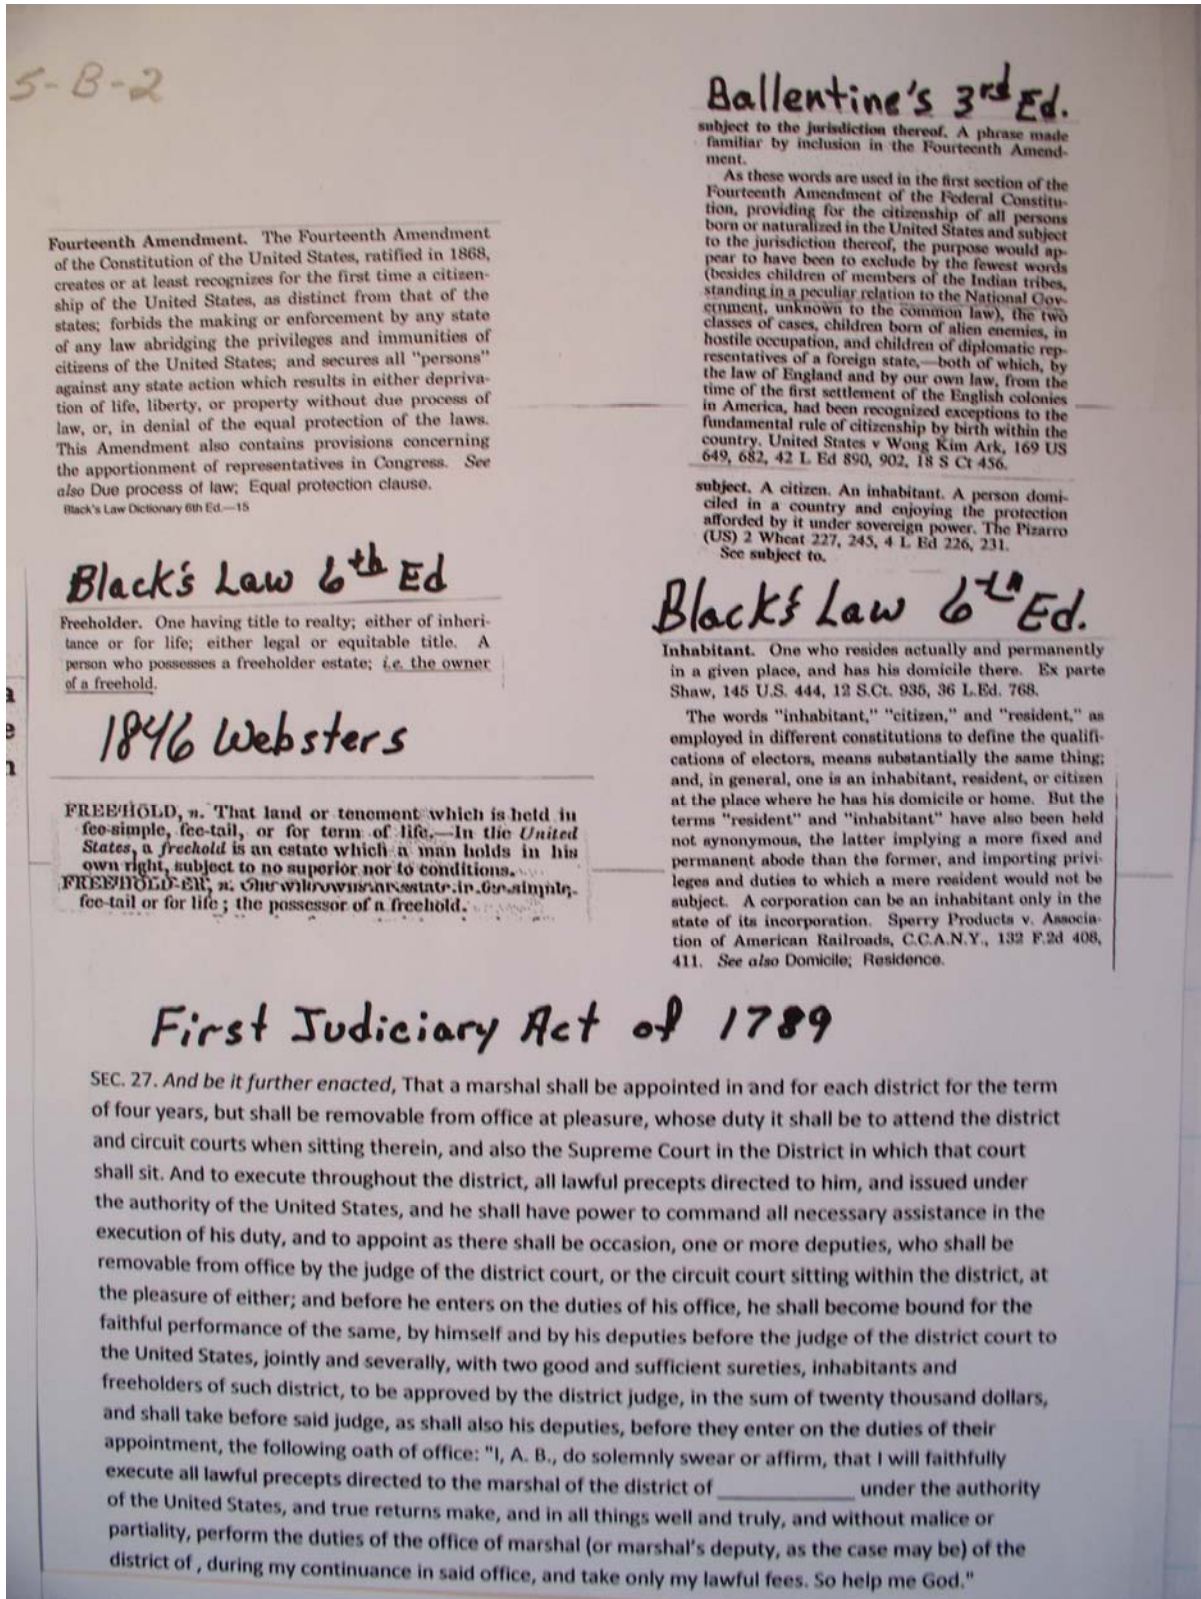 5-B-2
Fourteenth Amendment. The Fourteenth Amendment
of the Constitution of the United States, ratified in 1868,
creates or at least recognizes for the first time a citizen-
ship of the United States, as distinct from that of the
states; forbids the making or enforcement by any state
of any law abridging the privileges and immunities of
citizens of the United States; and secures all "persons"
against any state action which results in either depriva-
tion of life, liberty, or property without due process of
law, or, in denial of the equal protection of the laws.
This Amendment also contains provisions concerning
the apportionment of representatives in Congress. See
also Due process of law; Equal protection clause.
Black's Law Dictionary 6th Ed.—15
Black's Law 6th Ed
Freeholder. One having title to realty; either of inheri-
tance or for life; either legal or equitable title. A
person who possesses a freeholder estate; i.e. the owner
of a freehold.
1846 Websters
FREE'HOLD, n. That land or tenement which is held in
fee-simple, fee-tail, or for term of life.—In the United
States, a freehold is an estate which a man holds in his
own right, subject to no superior nor to conditions.
FREE'HOLD-ER, n. One who owns an estate in fee-simple,
fee-tail or for life; the possessor of a freehold.
Ballentine's 3rd Ed.
subject to the jurisdiction thereof. A phrase made
familiar by inclusion in the Fourteenth Amend-
ment.
As these words are used in the first section of the
Fourteenth Amendment of the Federal Constitu-
tion, providing for the citizenship of all persons
born or naturalized in the United States and subject
to the jurisdiction thereof, the purpose would ap-
pear to have been to exclude by the fewest words
(besides children of members of the Indian tribes,
standing in a peculiar relation to the National Gov-
ernment, unknown to the common law), the two
classes of cases, children born of alien enemies, in
hostile occupation, and children of diplomatic rep-
resentatives of a foreign state,—both of which, by
the law of England and by our own law, from the
time of the first settlement of the English colonies
in America, had been recognized exceptions to the
fundamental rule of citizenship by birth within the
country. United States v Wong Kim Ark, 169 US
649, 682, 42 L Ed 890, 902, 18 S Ct 456.
subject. A citizen. An inhabitant. A person domi-
ciled in a country and enjoying the protection
afforded by it under sovereign power. The Pizarro
(US) 2 Wheat 227, 245, 4 L Ed 226, 231.
See subject to.
Black's Law 6th Ed.
Inhabitant. One who resides actually and permanently
in a given place, and has his domicile there. Ex parte
Shaw, 145 U.S. 444, 12 S.Ct. 935, 36 L.Ed. 768.
The words "inhabitant," "citizen," and "resident," as
employed in different constitutions to define the qualifi-
cations of electors, means substantially the same thing;
and, in general, one is an inhabitant, resident, or citizen
at the place where he has his domicile or home. But the
terms "resident" and "inhabitant" have also been held
not synonymous, the latter implying a more fixed and
permanent abode than the former, and importing privi-
leges and duties to which a mere resident would not be
subject. A corporation can be an inhabitant only in the
state of its incorporation. Sperry Products v. Associa-
tion of American Railroads, C.C.A.N.Y., 132 F.2d 408,
411. See also Domicile; Residence.
First Judiciary Act of 1789
SEC. 27. And be it further enacted, That a marshal shall be appointed in and for each district for the term
of four years, but shall be removable from office at pleasure, whose duty it shall be to attend the district
and circuit courts when sitting therein, and also the Supreme Court in the District in which that court
shall sit. And to execute throughout the district, all lawful precepts directed to him, and issued under
the authority of the United States, and he shall have power to command all necessary assistance in the
execution of his duty, and to appoint as there shall be occasion, one or more deputies, who shall be
removable from office by the judge of the district court, or the circuit court sitting within the district, at
the pleasure of either; and before he enters on the duties of his office, he shall become bound for the
faithful performance of the same, by himself and by his deputies before the judge of the district court to
the United States, jointly and severally, with two good and sufficient sureties, inhabitants and
freeholders of such district, to be approved by the district judge, in the sum of twenty thousand dollars,
and shall take before said judge, as shall also his deputies, before they enter on the duties of their
appointment, the following oath of office: "I, A. B., do solemnly swear or affirm, that I will faithfully
execute all lawful precepts directed to the marshal of the district of ____________ under the authority
of the United States, and true returns make, and in all things well and truly, and without malice or
partiality, perform the duties of the office of marshal (or marshal's deputy, as the case may be) of the
district of , during my continuance in said office, and take only my lawful fees. So help me God."